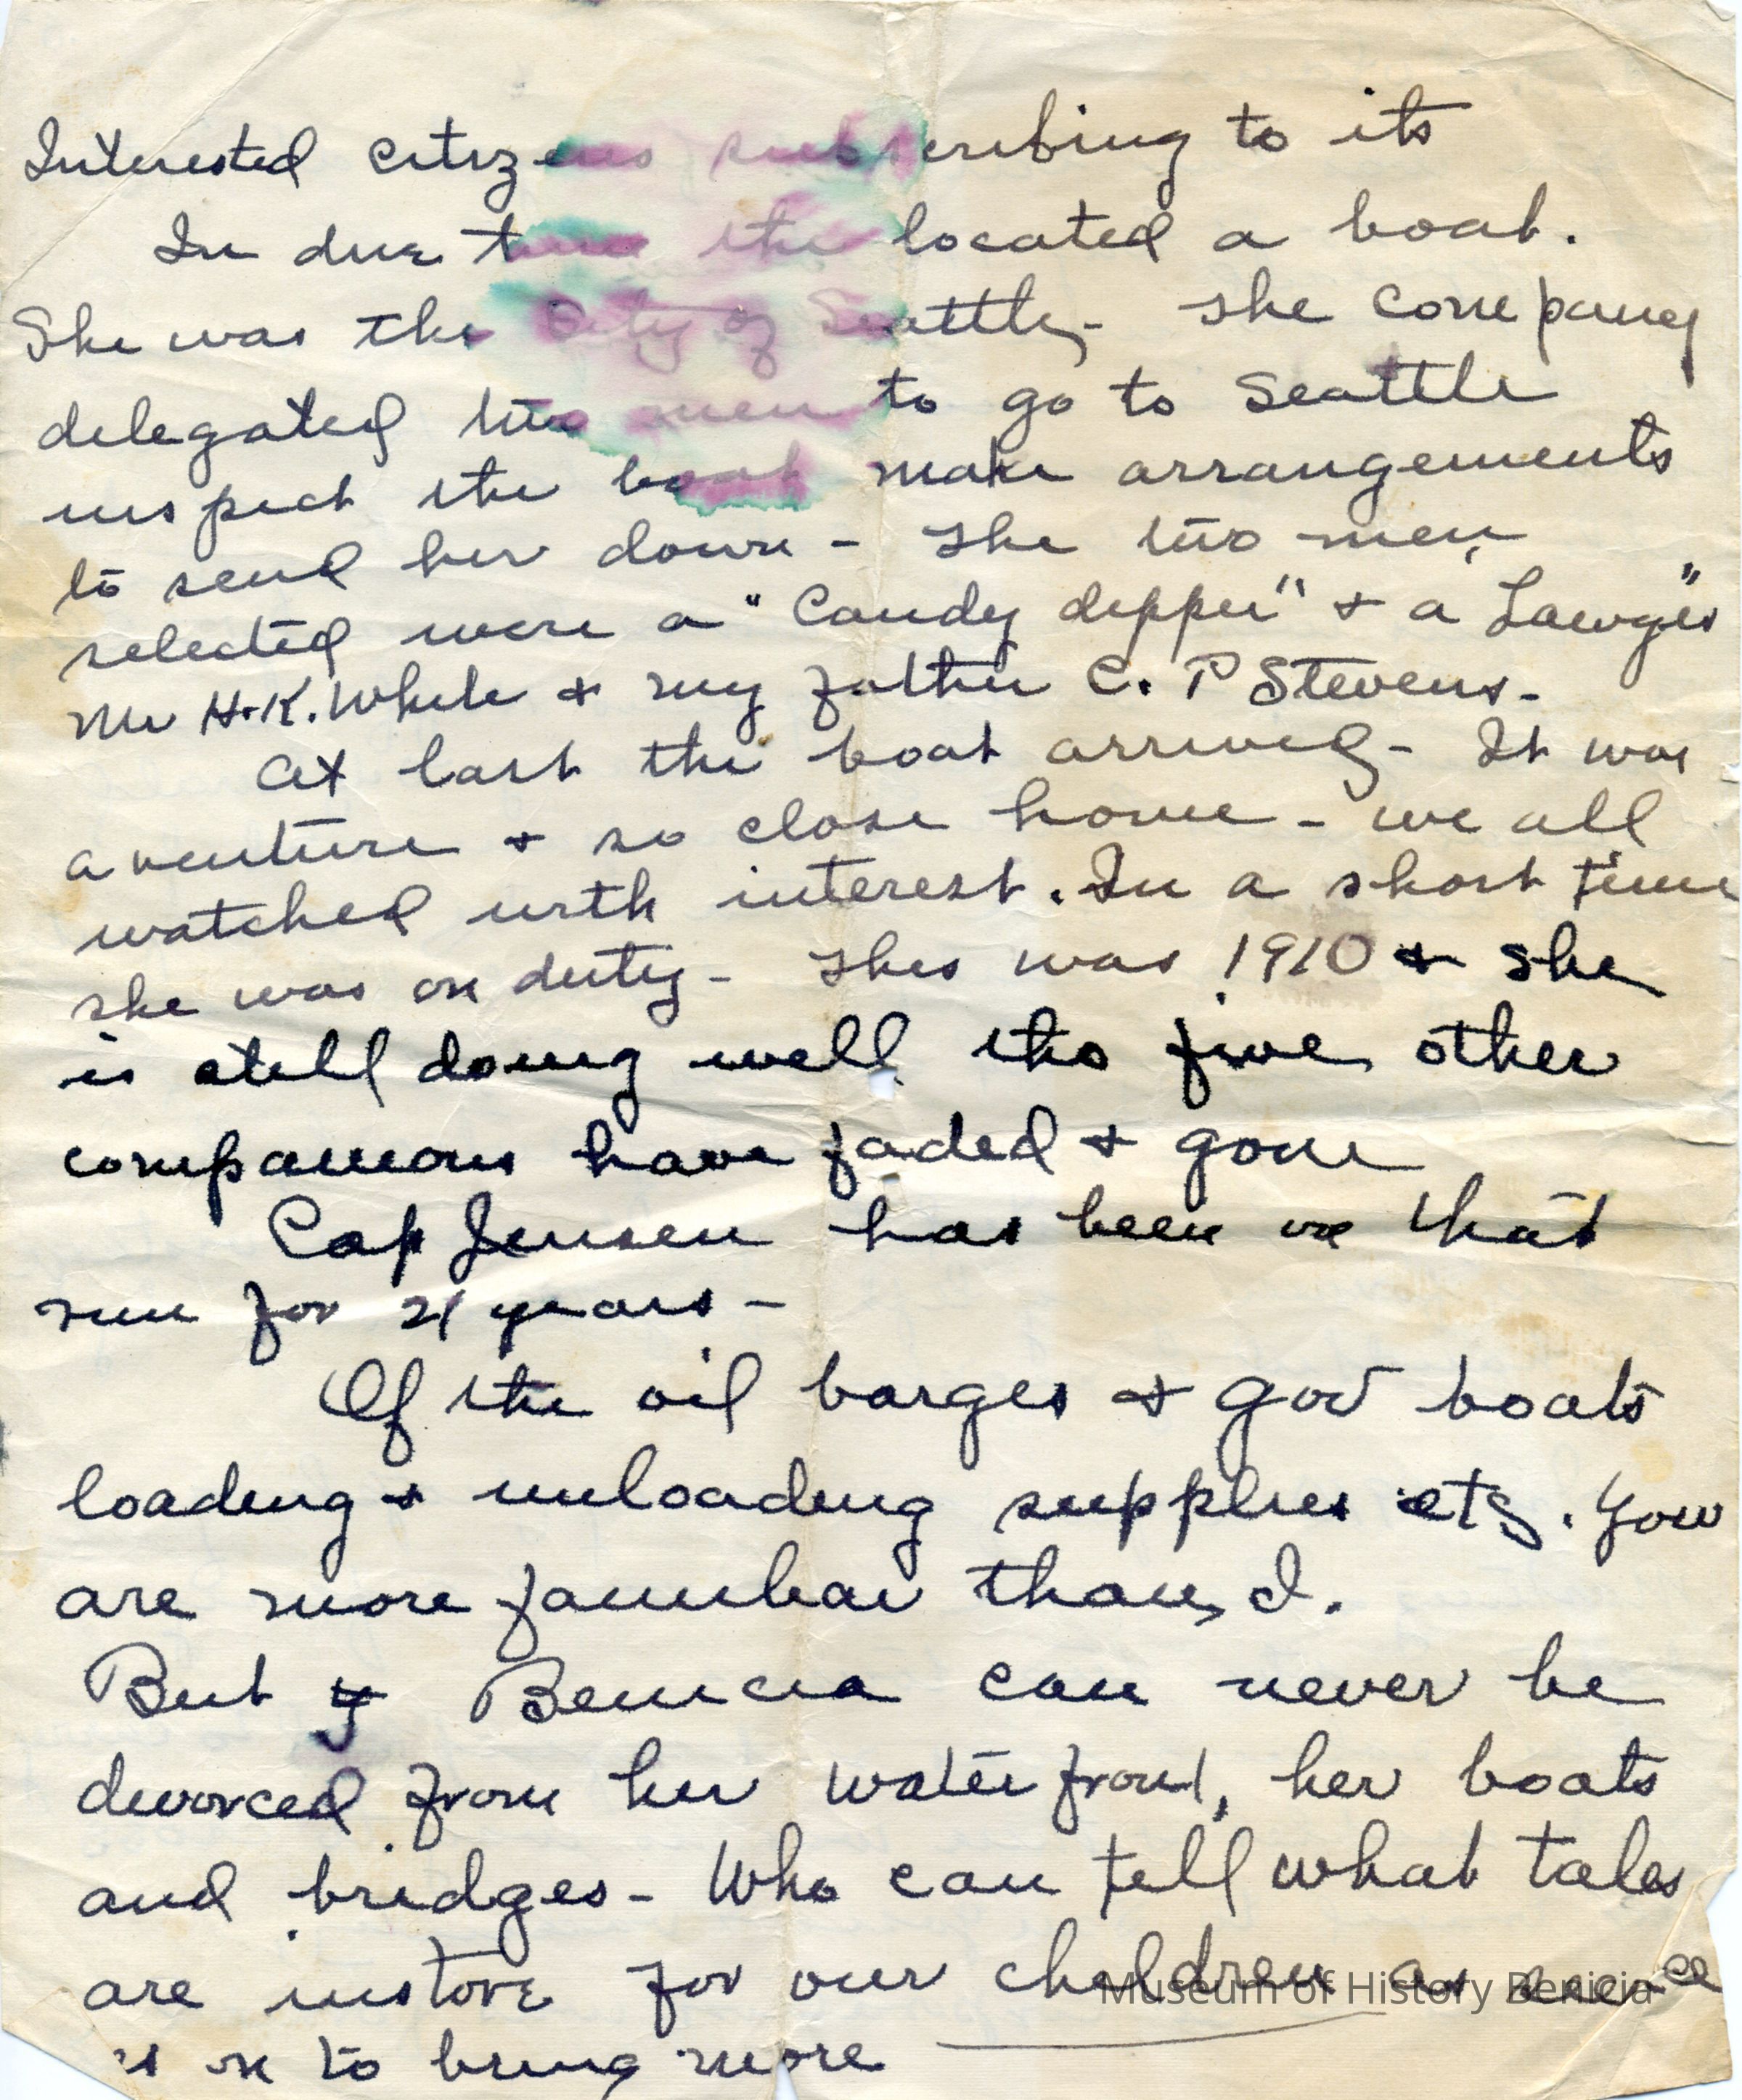 Interested citizens subscribing to its
In due time the located a boat.
She was the City of Seattle, - The company
delegated two men to go to Seattle
inspect the boat make arrangements
to send her down - The two men,
selected were a "Candy dipper" & a Lawyer"
Mr H.K. White & my father C. P Stevens -
At last the boat arrived - It was
a venture & so close home - we all
watched with interest. In a short time
she was on duty - This was 1910 & she
is still doing well, tho five other
companions have faded & gone
Cap Jensen has been on that
run for 21 years -
Of the oil barges & gov boats
loading & unloading supplies etc. You
are more familiar than, I.
But Benicia can never be
divorced from her waterfront, her boats
and bridges - Who can tell what tales
are instore for our children as
is on to bring more
Museum of History Benicia